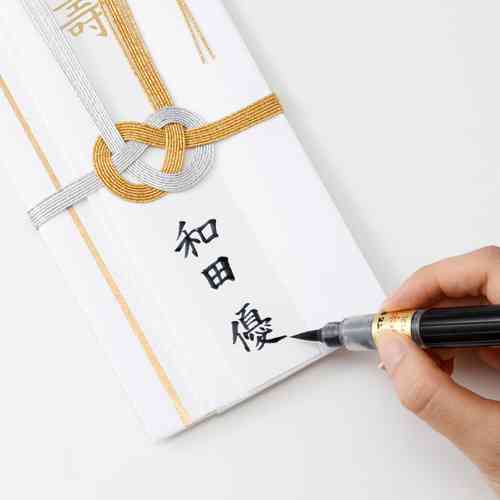 寿
和田
優